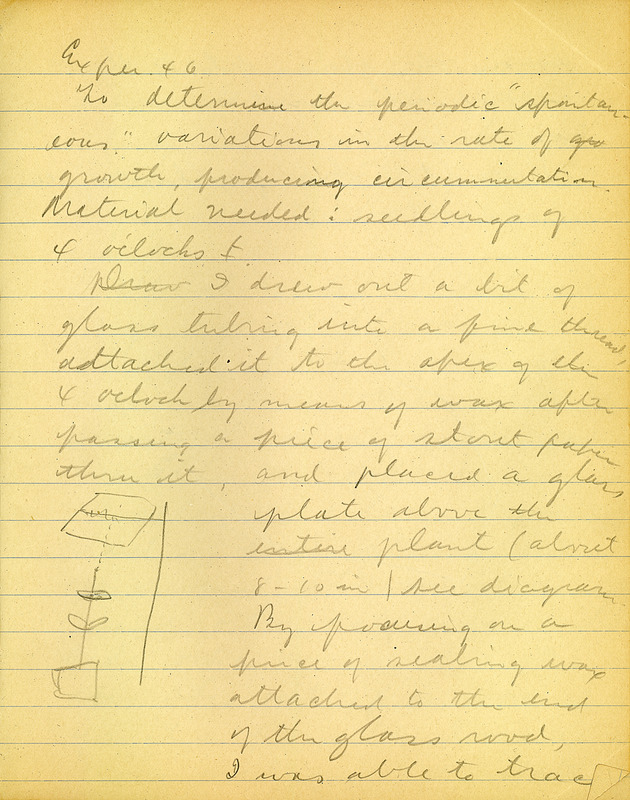 Exper. 46
To determine the periodic "spontan-
eous" variations in the rate of gro
growth, producing circumnutation.
Material needed: seedlings of
4 o'clocks
Draw I drew out a bit of
glass tubing into a fine thread,
attached it to the apex of the
4 oclock by means of wax after
passing a piece of stout paper
thru it, and placed a glass
plate above the
entire plant (about
8-10 in) see diagram
By focusing on a
piece of sealing wax
attached to the end
of the glass rood,
I was able to trace